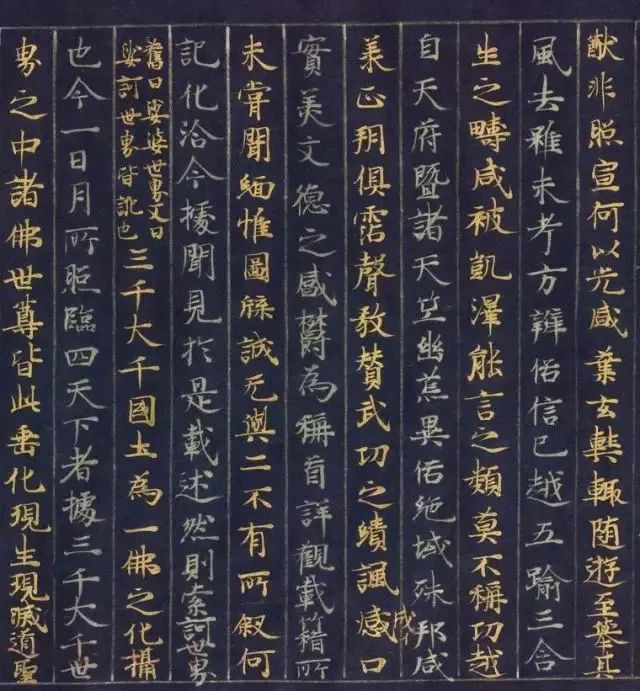 猷非照宣何以光盛葉玄奘輒随遊至舉其
風去雖未考方辨俗信已越五踰三含
生之疇咸被凱澤能言之類莫不稱功越
自天府暨諸天竺幽荒異俗絶域殊邦咸
承正朔俱霑聲教賛武功之績諷盛成口
實美文德之盛欝為稱首詳觀載籍所
未甞聞緬惟圖牒誠无與二不有所叙何
記化洽今據聞見於是載述然則索訶世界
舊曰娑婆世界又曰
娑訶世界皆訛也
三千大千國土為一佛之化攝
也今一日月所照臨四天下者據三千大千世
界之中諸佛世尊皆此垂化現生現滅導聖